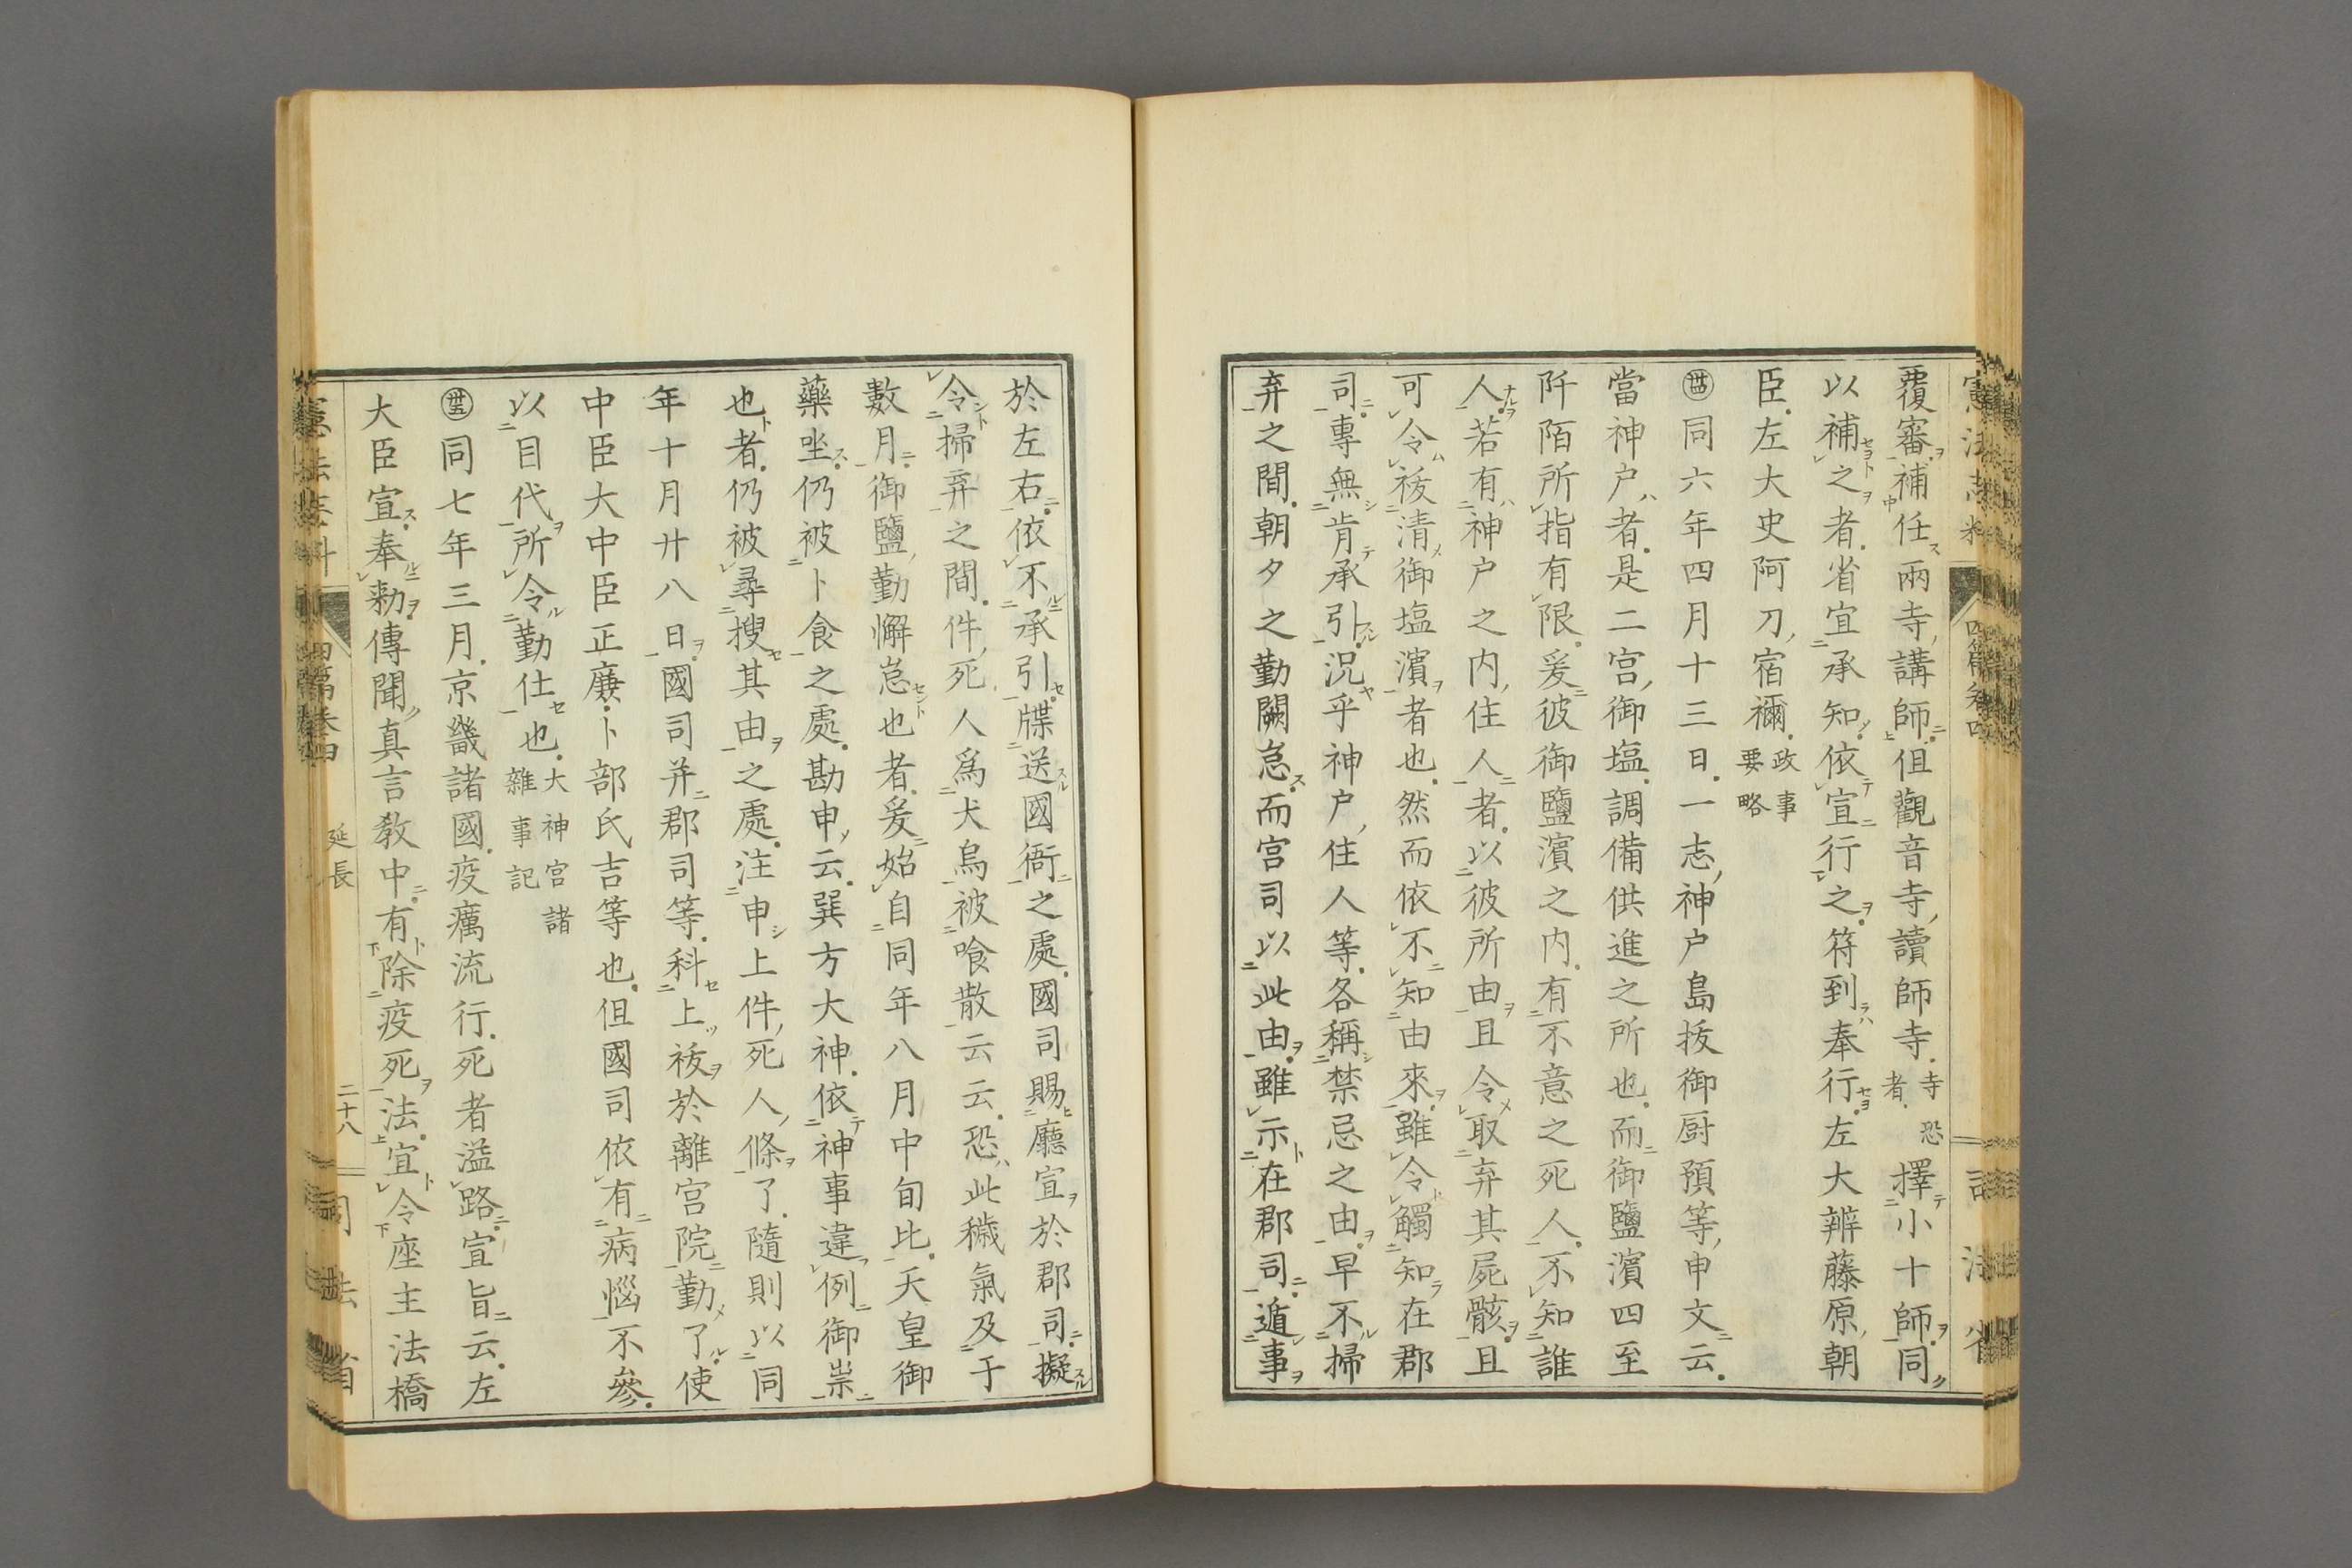 覆審補任兩寺講師但觀音寺讀師寺寺恐者擇小十師同
以補之者省宜承知依宣行之符到奉行左大辨藤原朝
臣左大史阿刀宿禰政事要略
同六年四月十三日一志神户島抜御厨預等申文云
當神户者是二宮御塩調備供進之所也而御鹽濱四至
阡陌所指有限爰彼御鹽濱之内有不意之死人不知誰
人若有神户之内住人者以彼所由且令取弃其屍骸且
可令祓清御塩濱者也然而依不知由來雖令觸知在郡
司專無肯承引況乎神户住人等各稱禁忌之由早不掃
弃之間朝夕之勤闕怠而宮司以此由雖示在郡司遁事
於左右依不承引牒送國衙之處國司賜廳宣於郡司擬
令掃弃之間件死人爲犬烏被喰散云云恐此穢氣及于
數月御鹽勤懈怠也者爰始自同年八月中旬比天皇御
藥坐仍被卜食之處勘申云巽方大神依神事違例御祟
也者仍被尋搜其由之處注申上件死人條了隨則以同
年十月廿八日國司并郡司等科上祓於離宮院勤了使
中臣大中臣正廉卜部氏吉等也但國司依有病惱不參
以目代所令勤仕也大神宮諸雜事記
同七年三月京畿諸國疫癘流行死者溢路宣旨云左
大臣宣奉勅傳聞真言教中有除疫死法宜令座主法橋
延長
二十八